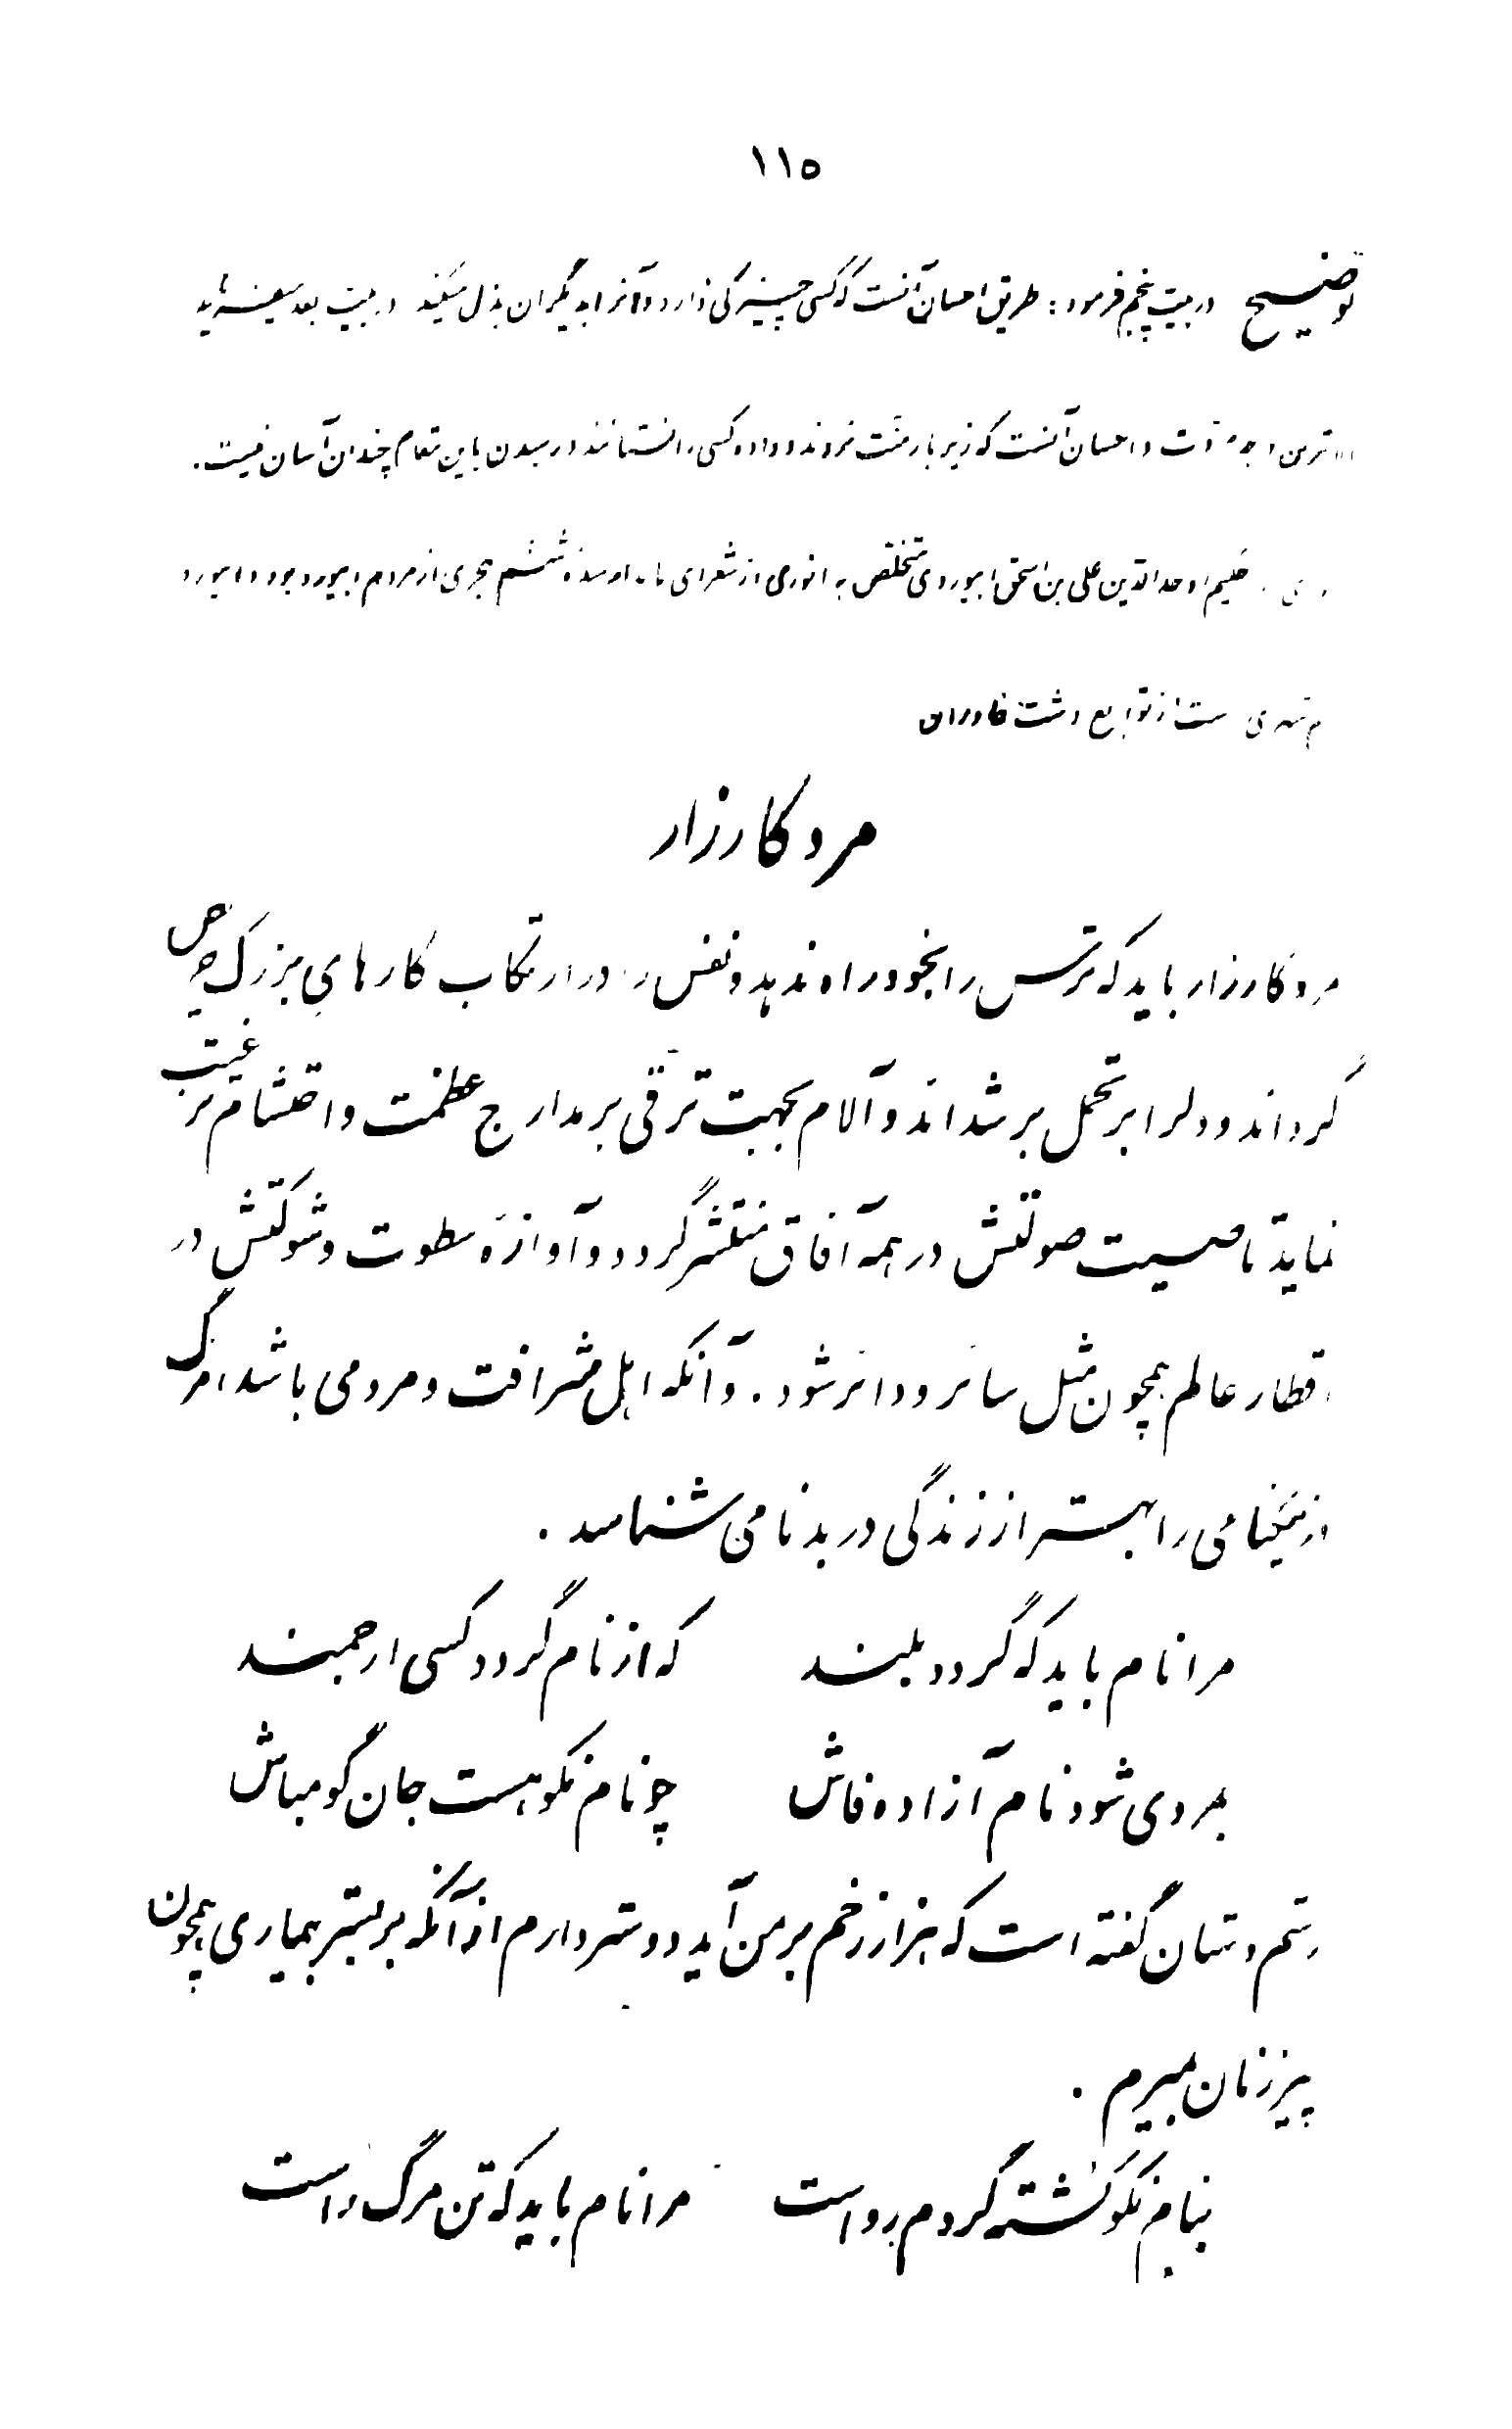 ۱۱۵
توضیح در بیت پنجم فرمود: طریق احسان آنست که کسی چیزیکه دارد و آنرا بدیگران بذل میکند در بیت بعد میفرماید
احسان آنست که زیر بار منت نروند و داده کسی را نستانند و رسیدن باین مقام چندان آسان نیست.
حکیم اوحدالدین علی بن اسحق ابیوردی متخلص به انوری از شعرای نامدار سده ششم هجری از مردم ابیورد بود و ابیورد
از توابع دشت خاوران
مرد کارزار
مرد کارزار باید که ترس را بخود راه ندهد و نفس را در ارتکاب کارهای بزرگ حریص
گرداند و دلرا بر تحمل بر شداند و آلام بجهت ترقی بر مدارج عظمت و احتشام ترغیب
نماید تا صیت صولتش در همه آفاق منتشر گردد و آوازه سطوت و شوکتش در
اقطار عالم همچون مثل سائر و دائر شود. و آنکه اهل شرافت و مردمی باشد مرگ
در نیکنامی را بهتر از زندگی در بدنامی شناسد.
مرا نام باید که گردد بلند که از نام گردد کسی ارجمند
بمردی شود نام آزاده فاش چو نام نکو هست جان گو مباش
رستم دستان گفته است که هزار زخم بر من آید دوستر دارم از آنکه بر بستر بیماری همچون
پیرزنان بمیرم.
بنام نکو کشته گردم رواست مرا نام باید که تن مرگ راست